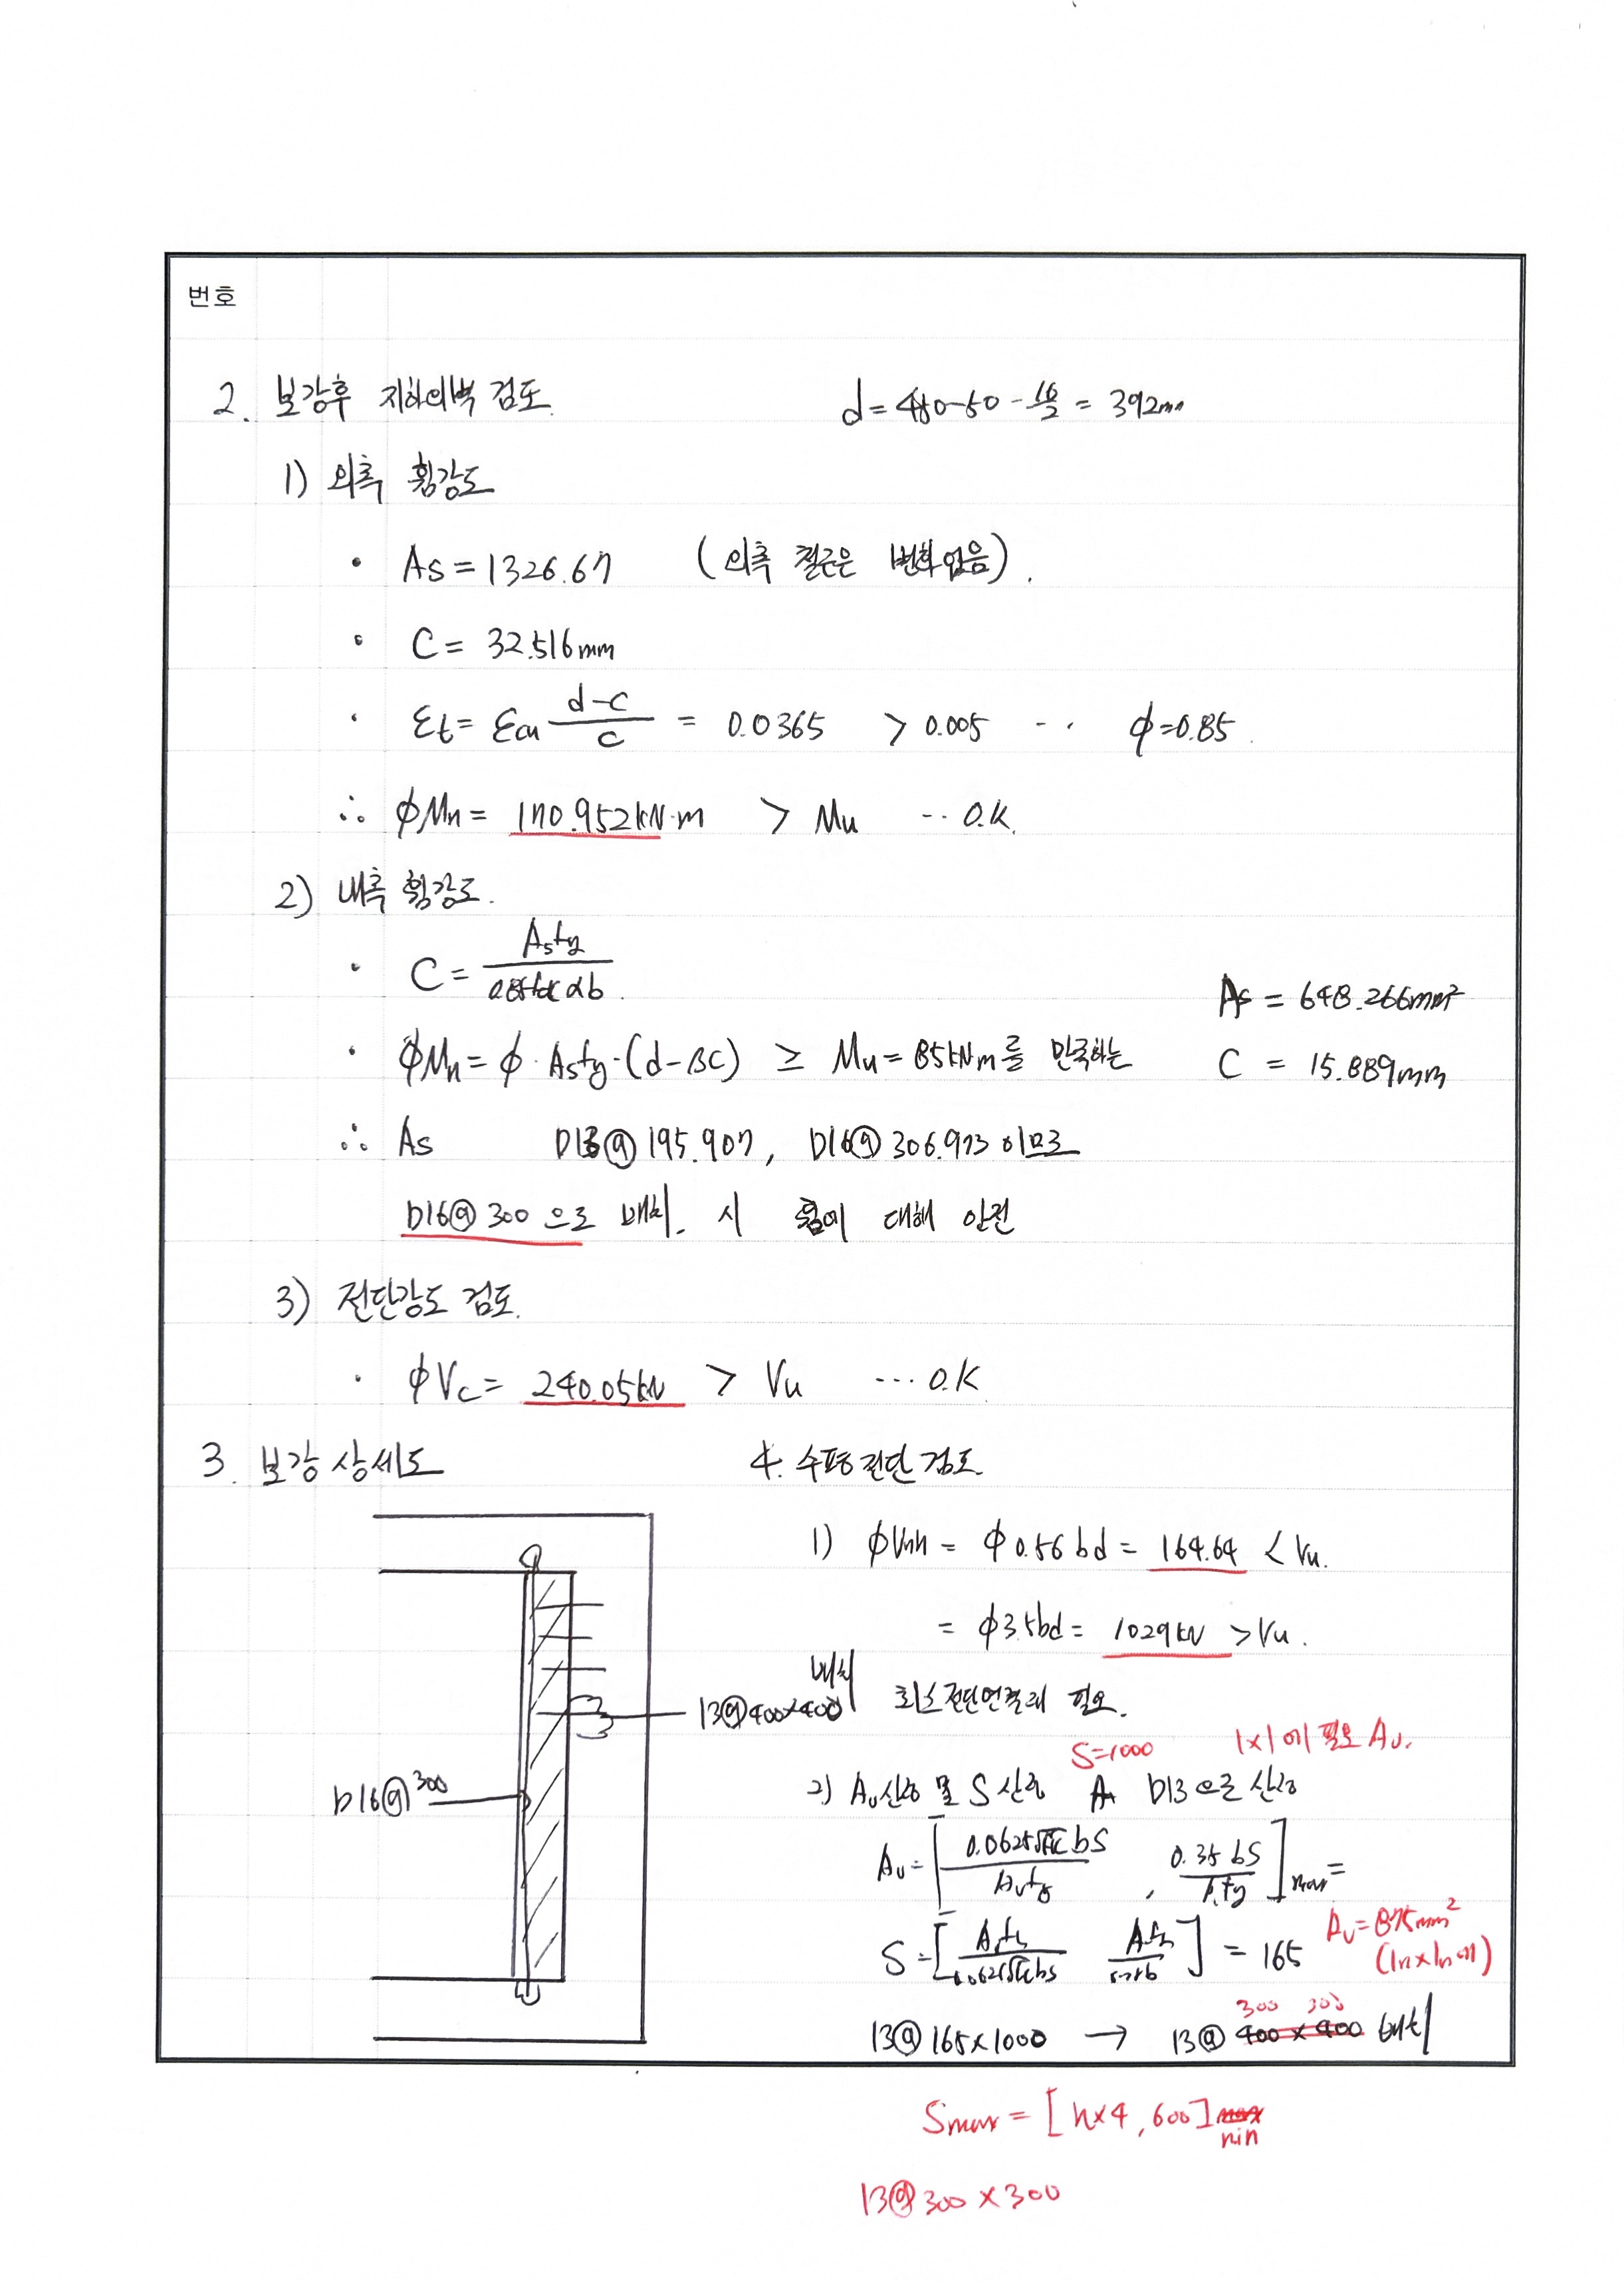 번호
2. 보강후 지하외벽 검토. d = 450-50-16/2 = 392mm
1) 외측 휨강도
• As = 1326.67 (외측 철근은 변화없음).
• C = 32.516mm
• εt = εcu (d-c)/c = 0.0365 > 0.005 ·· φ=0.85.
∴ φMn = 170.952kN·m > Mu ·· O.K.
2) 내측 휨강도.
• C = Asfy / 0.85fck αb.
As = 648.266mm²
• φMn = φ·Asfy·(d-βc) ≥ Mu = 85kNm를 만족하는
C = 15.889mm
∴ As D13@195.907, D16@306.973 이므로
D16@300 으로 배치. 시 휨에 대해 안전
3) 전단강도 검토.
• φVc = 240.05kN > Vu ··· O.K
3. 보강 상세도
D16@300
13@400×400
4. 수평전단 검토.
1) φVnh = φ0.56bd = 164.64 < Vu.
= φ3.5bd = 1029kN > Vu.
배치 최소전단연결재 필요.
S=1000 1×1에 필요 Av.
2) Av산정 및 S 산정 D13으로 산정
Av = [ 0.0625√fck bS / , 0.35 bS / fy ]max =
S = [ / 0.0625√fck bs ] = 165
Av = 875mm²
13@165×1000 → 13@ 400 × 400 배치
300 300
Smax = [h×4, 600] max
min
13@300×300